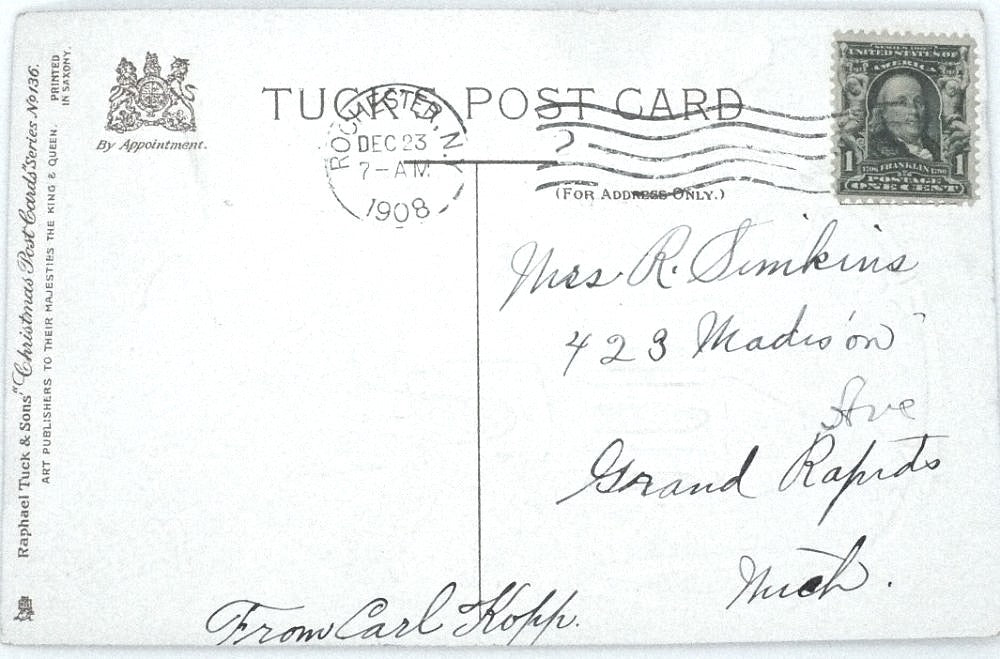 TUCK'S POST CARD
By Appointment.
(FOR ADDRESS ONLY.)
Raphael Tuck & Sons' "Christmas Post Cards" Series No 136.
ART PUBLISHERS TO THEIR MAJESTIES THE KING & QUEEN.
PRINTED
IN SAXONY.
ROCHESTER, N.
DEC 23
7-AM
1908
SERIES 1902
UNITED STATES OF
AMERICA
1 FRANKLIN 1
POSTAGE
ONE CENT
Mrs R. Simkins
423 Madison
Ave
Grand Rapids
Mich.
From Carl Kopp.